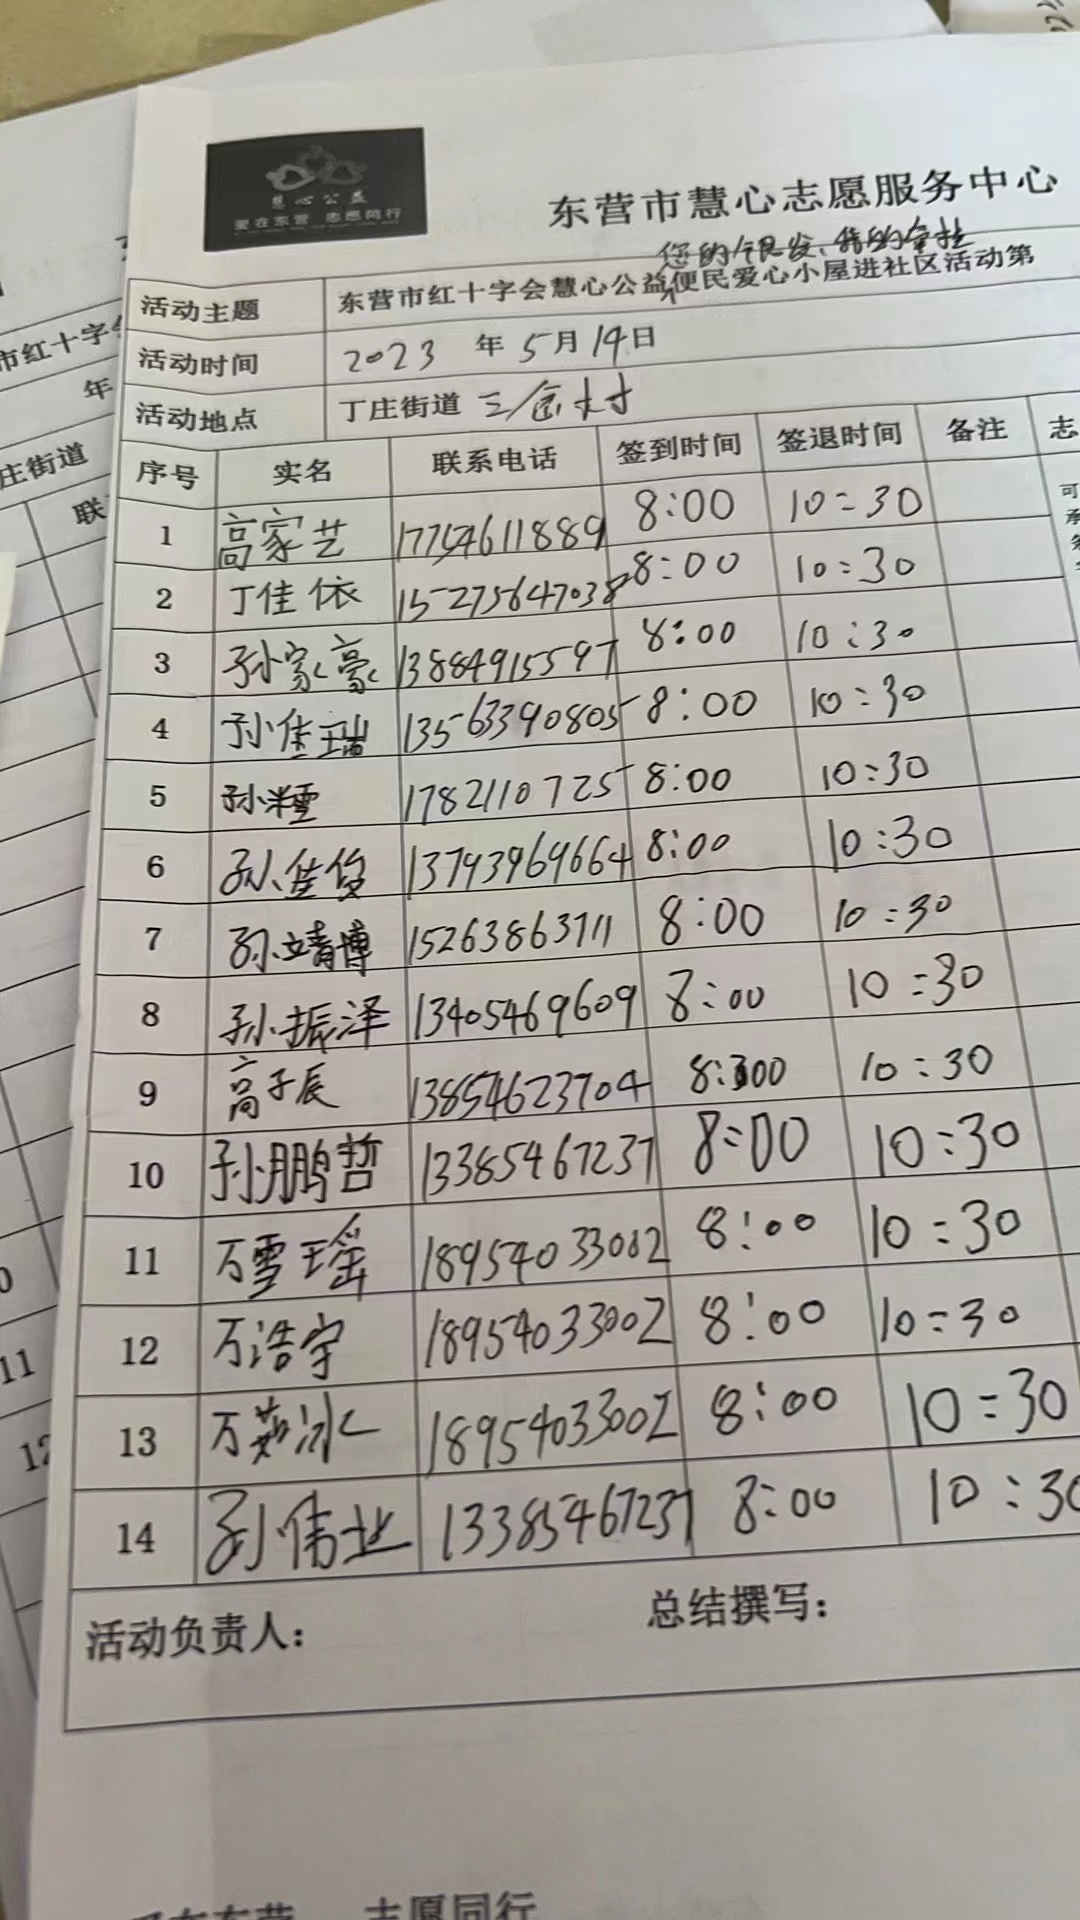 慧心公益
爱在东营 志愿同行
东营市慧心志愿服务中心
您的银发、我的牵挂
活动主题 东营市红十字会慧心公益便民爱心小屋进社区活动第
活动时间 2023 年 5月 14日
活动地点 丁庄街道 三合村
序号 实名 联系电话 签到时间 签退时间 备注 志
1 高家艺 17754611889 8:00 10:30
2 丁佳依 15275647038 8:00 10:30
3 孙家豪 13884915597 8:00 10:30
4 孙佳瑞 13563390805 8:00 10:30
5 孙 17821107725 8:00 10:30
6 孙佳俊 13793969664 8:00 10:30
7 孙靖博 15263863711 8:00 10:30
8 孙振泽 13405469609 8:00 10:30
9 高子辰 13854623704 8:00 10:30
10 孙鹏哲 13385467237 8:00 10:30
11 万雪瑶 18954033002 8:00 10:30
12 万浩宇 18954033002 8:00 10:30
13 万茹冰 18954033002 8:00 10:30
14 孙伟业 13385467237 8:00 10:30
活动负责人： 总结撰写：
志愿同行